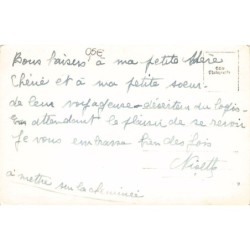 OSE
Bons baisers à ma petite Mère
Chérie et à ma petite soeur
de leur voyageuse - désertion du logis
En attendant le plaisir de se revoir
Je vous embrasse bien des fois
à mettre sur la cheminée